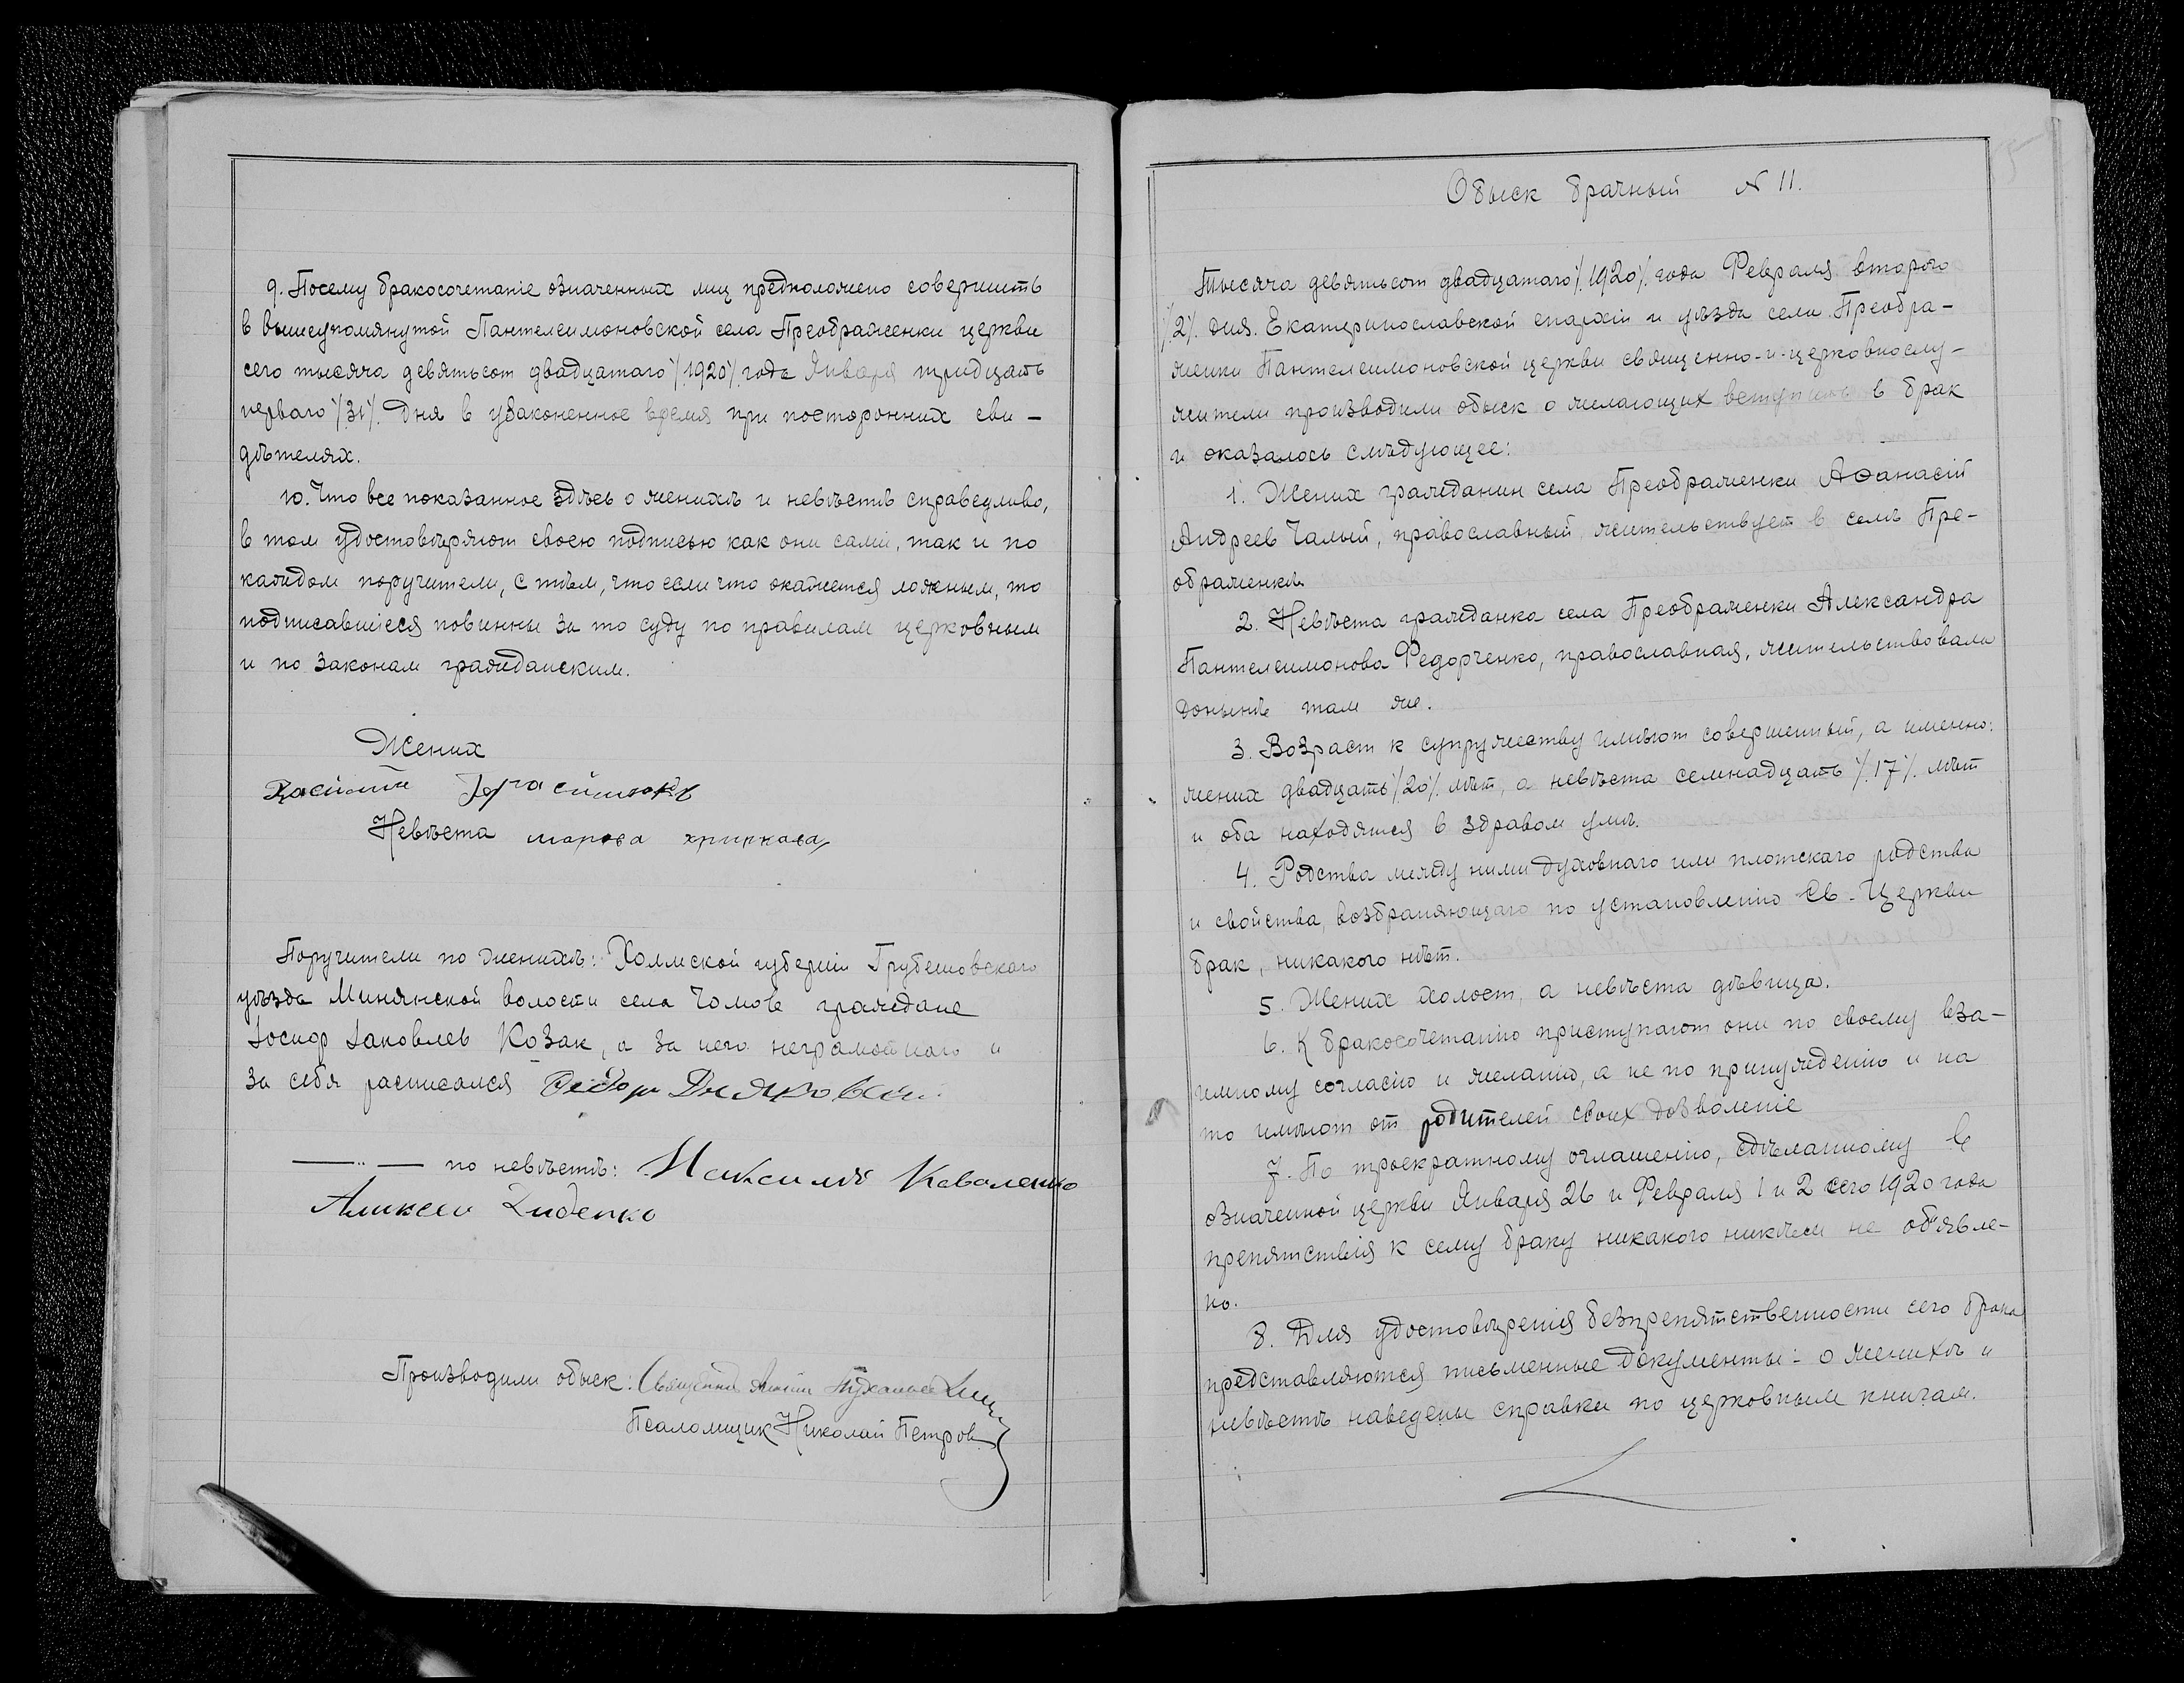 9. Посему бракосочетаніе означенных лиц предположено совершить
в вышеупомянутой Пантелеимоновской села Преображенки церкви
сего тысяча девятьсот двадцатаго /1920/ года Января тридцать
перваго /31/ дня в узаконенное время при посторонних сви-
дѣтелях.
10. Что все показанное здѣсь о женихѣ и невѣстѣ справедливо,
в том удостовѣряют своею подписью как они сами, так и по
каждом поручители, с тѣм, что если что окажется ложным, то
подписавшіеся повинны за то суду по правилам церковным
и по законам гражданским.
Жених
Невѣста
Поручители по женихѣ: Холмской губерніи Грубешовскаго
уѣзда Минянской волости села Чомов граждане
Іосиф Іаковлев Козак, а за него неграмотнаго и
за себя расписался
—„— по невѣстѣ: Максим Коваленко
Аликсеи Диденко
Производили обыск: Священник
Псаломщик Николай Петров
Обыск брачный № 11.
Тысяча девятьсот двадцатаго /1920/ года Февраля второго
/2/ дня. Екатеринославской епархіи и уѣзда села Преобра-
женки Пантелеимоновской церкви священно-и-церковнослу-
жители производили обыск о желающих вступить в брак
и оказалось слѣдующее:
1. Жених гражданин села Преображенки Аѳанасій
Андреев Чалый, православный, жительствует в селѣ Пре-
ображенкѣ
2. Невѣста гражданка села Преображенки Александра
Пантелеимонова Федорченко, православная, жительствовала
донынѣ там же.
3. Возраст к супружеству имѣют совершенный, а именно:
жених двадцать /20/ лѣт, а невѣста семнадцать /17/ лѣт
и оба находятся в здравом умѣ.
4. Родства между ними духовнаго или плотскаго родства
и свойства, возбраняющаго по установленію Св. Церкви
брак, никакого нѣт.
5. Жених холост, а невѣста дѣвица.
6. К бракосочетанію приступают они по своему вза-
имному согласію и желанію, а не по принужденію и на
то имѣют от родителей своих дозволеніе
7. По троекратному оглашенію, сдѣланному в
означенной церкви Января 26 и Февраля 1 и 2 сего 1920 года
препятствія к сему браку никакого никѣм не об"явле-
но.
8. Для удостовѣренія безпрепятственности сего брака
представляются письменные документы: о женихѣ и
невѣстѣ наведены справки по церковным книгам.